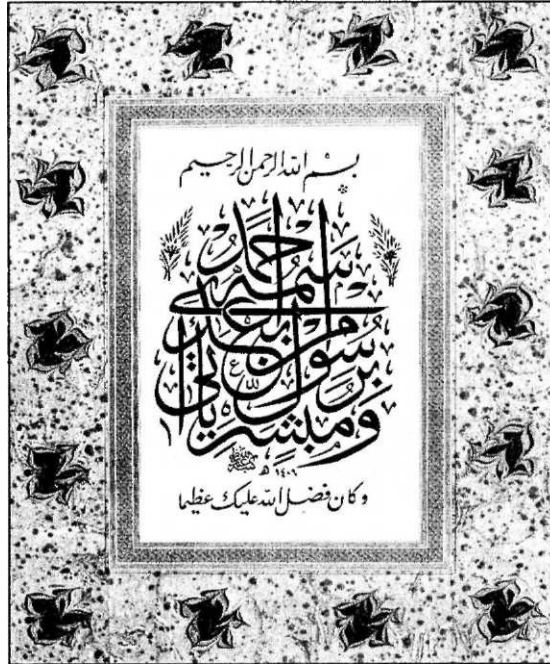 بسم الله الرحمن الرحيم
ومبشرا برسول يأتي من بعدي اسمه أحمد
١٤٠٦ هـ
وكان فضل الله عليك عظيما